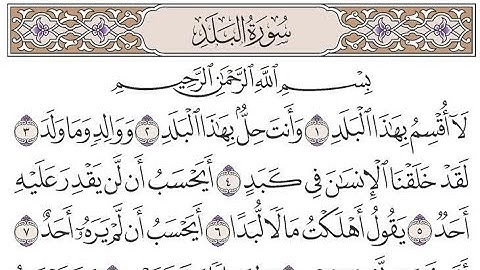 سُورَةُ البَلَدِ
بِسْمِ اللَّهِ الرَّحْمَٰنِ الرَّحِيمِ
لَآ أُقْسِمُ بِهَٰذَا ٱلْبَلَدِ ١ وَأَنتَ حِلٌّۢ بِهَٰذَا ٱلْبَلَدِ ٢ وَوَالِدٍ وَمَا وَلَدَ ٣
لَقَدْ خَلَقْنَا ٱلْإِنسَٰنَ فِى كَبَدٍ ٤ أَيَحْسَبُ أَن لَّن يَقْدِرَ عَلَيْهِ
أَحَدٌ ٥ يَقُولُ أَهْلَكْتُ مَالًا لُّبَدًا ٦ أَيَحْسَبُ أَن لَّمْ يَرَهُۥٓ أَحَدٌ ٧